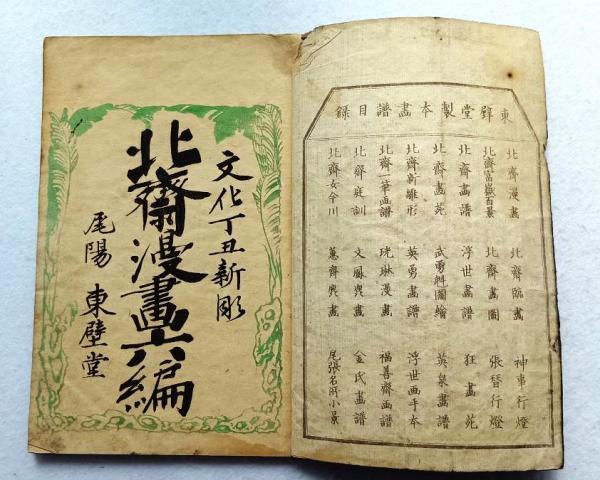 東壁堂製本畫譜目録
北齋漫畫 北齋臨畫 神事行燈
北齋富嶽百景 北齋畫圖 張替行燈
北齋畫譜 浮世畫譜 狂畫苑
北齋畫苑 武勇魁圖繪 英泉畫譜
北齋新雛形 英勇畫譜 浮世画手本
北齋一筆画譜 光琳漫畫 福善齋画譜
北齋庭訓 文鳳麁畫 金氏畫譜
北齋女今川 蕙齋麁畫 尾張名所小景
文化丁丑新彫
北齋漫畫六編
尾陽 東壁堂